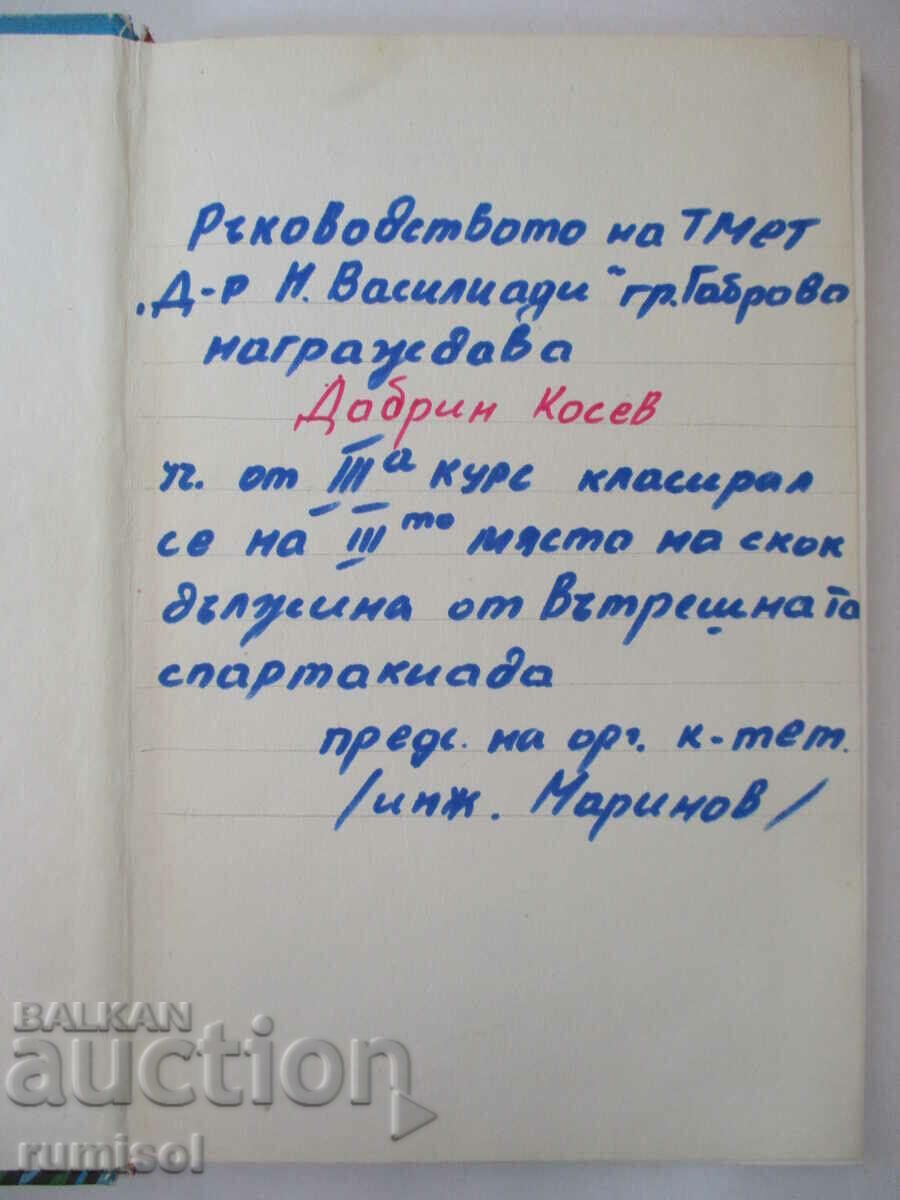 Ръководството на ТМЕТ
„Д-р Н. Василиади“ гр. Габрово
награждава
Добрин Косев
уч. от IIIа курс класирал
се на IIIто място на скок
дължина от вътрешната
спартакиада
предс. на орг. к-тет.
/инж. Маринов/
BALKAN
auction
rumisol